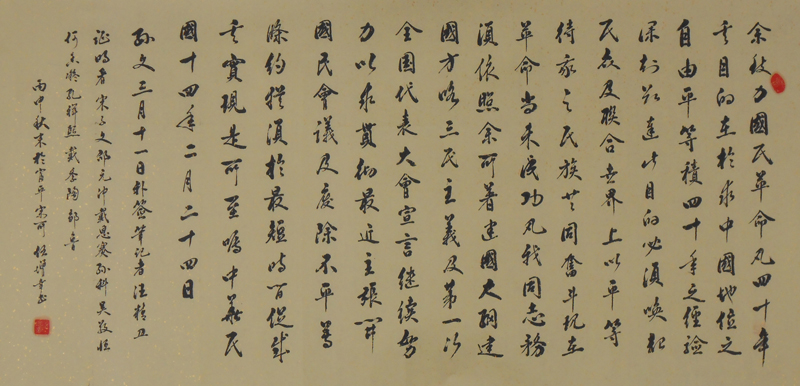 余致力國民革命凡四十年
其目的在於求中國地位之
自由平等積四十年之經驗
深知欲達此目的必須喚起
民众及联合世界上以平等
待我之民族共同奮斗現在
革命尚未成功凡我同志務
須依照余所著建國大綱建
國方略三民主義及第一次
全国代表大會宣言继续努
力以求貫彻最近主張開
國民會議及廢除不平等
條約猶須於最短时间促成
其實現是所至囑中華民
國十四年二月二十四日
孙文三月十一日补签筆记者汪精卫
证明者宋子文邵元冲戴恩赛孙科吴敬恒
何香凝孔祥熙戴季陶邹鲁
丙申秋末於